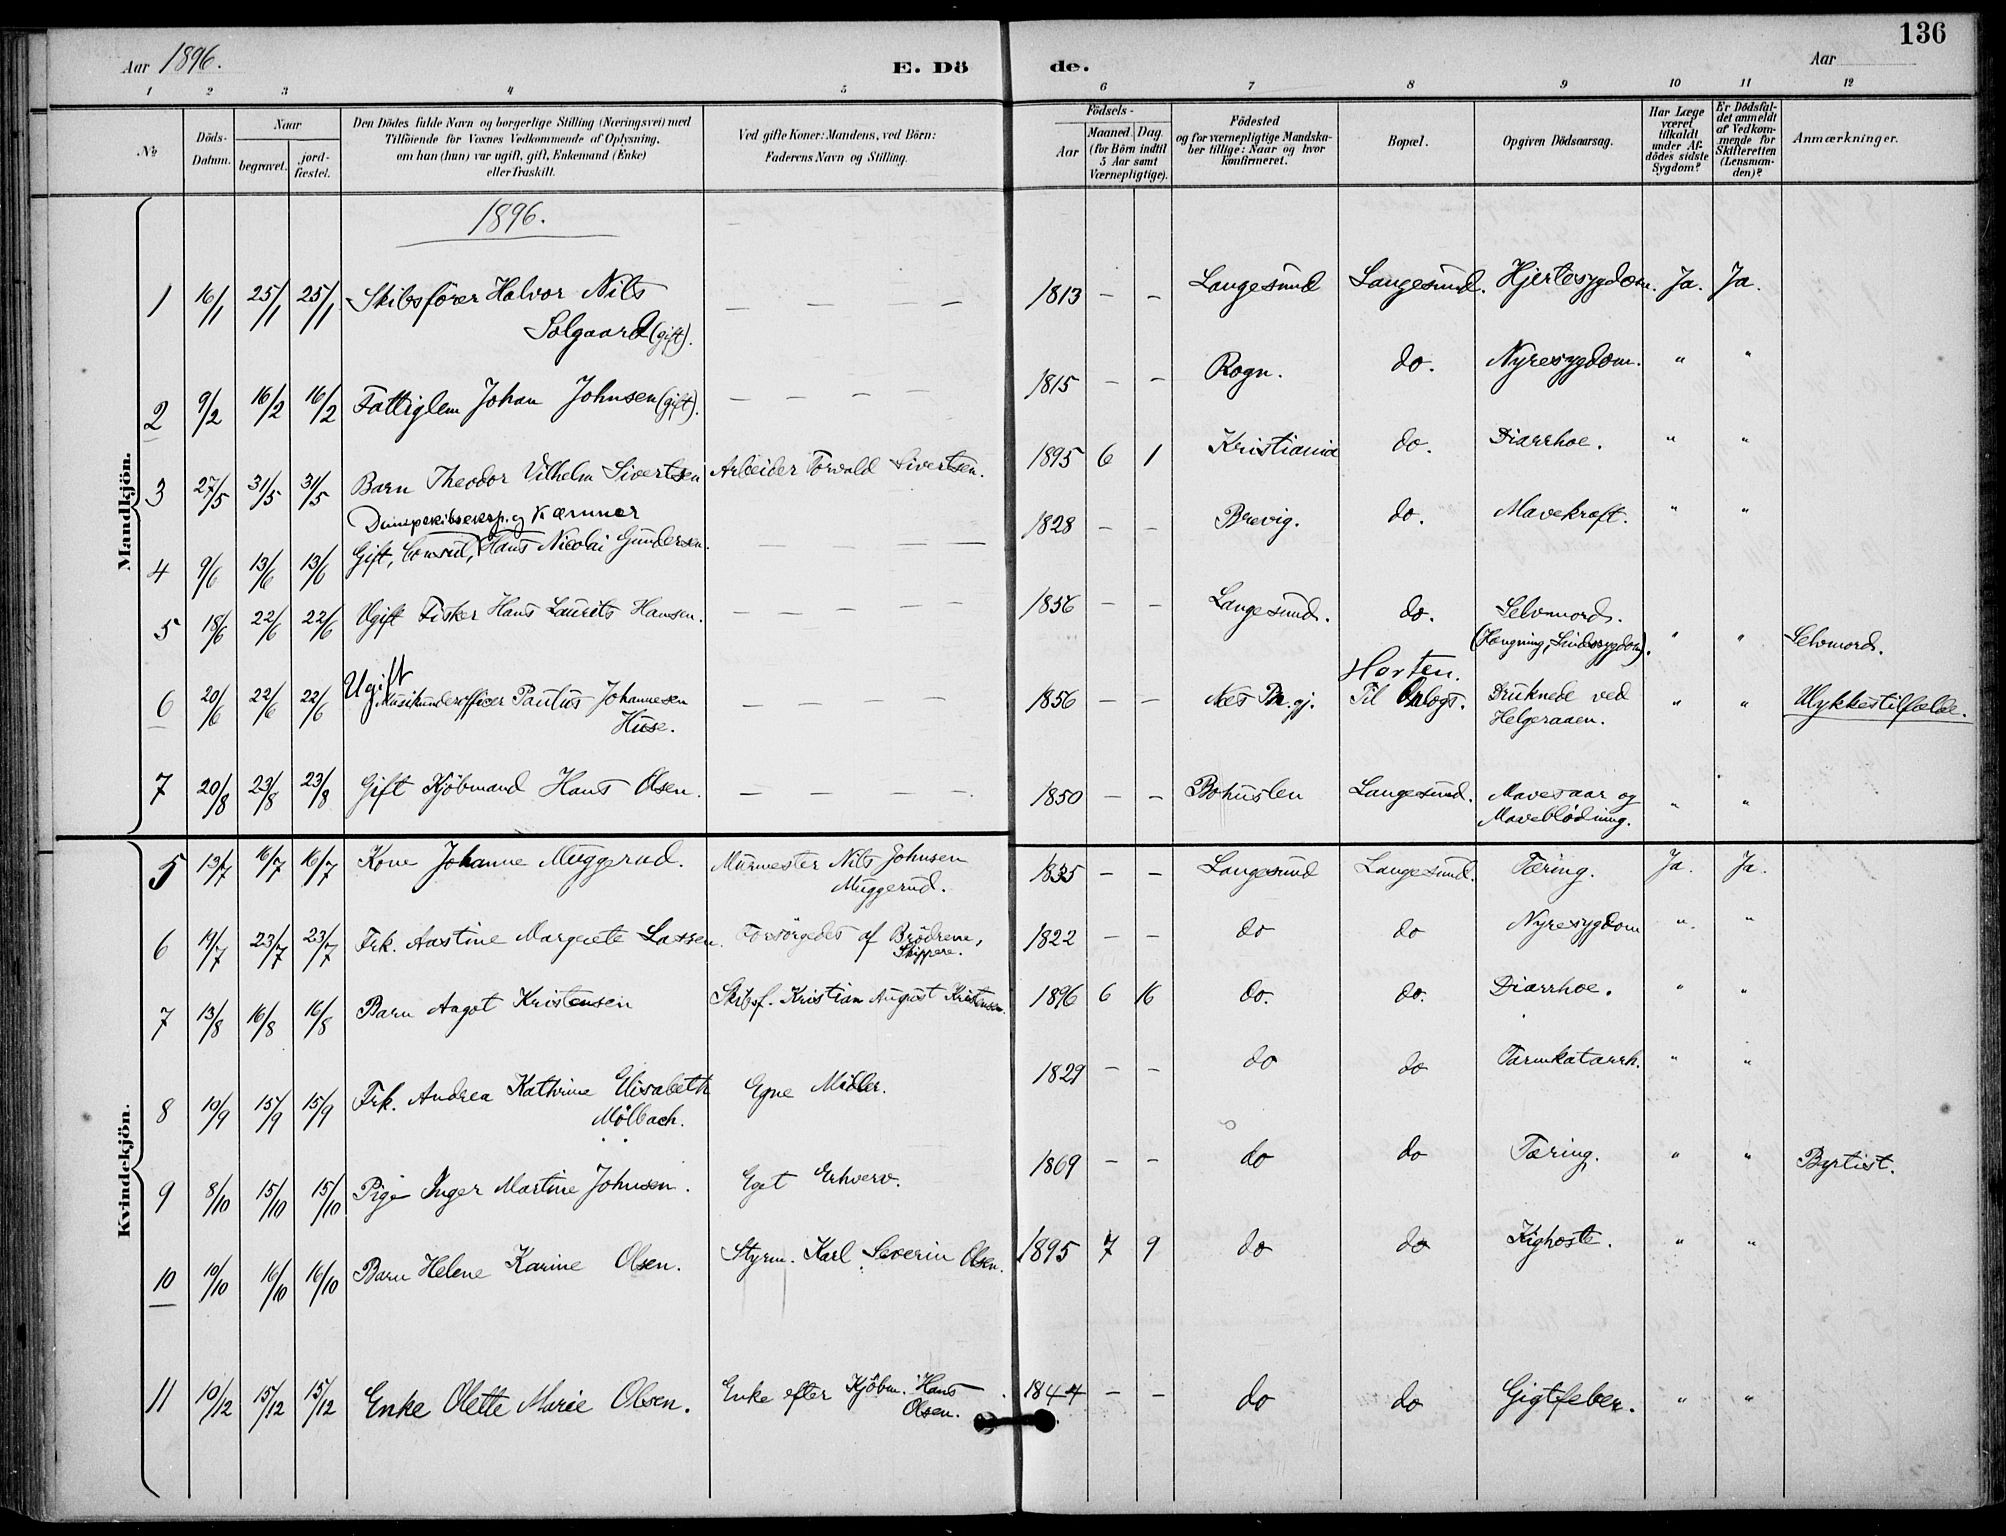 136
Aar 1896.
E. Dö
de.
Aar
1 2 3 4 5 6 7 8 9 10 11 12
No
Döds-Datum.
Naar
begravet.
jord-fæstet.
Den Dödes fulde Navn og borgerlige Stilling (Næringsvei) med
Tilföiende for Voxnes Vedkommende af Oplysning,
om han (hun) var ugift, gift, Enkemand (Enke)
eller fraskilt.
Ved gifte Koner: Mandens, ved Börn:
Faderens Navn og Stilling.
Födsels-
Aar
Maaned. Dag.
(for Börn indtil
5 Aar samt
Værnepligtige).
Födested
og for værnepligtige Mandska-
ber tillige: Naar og hvor
konfirmeret.
Bopæl.
Opgiven Dödsaarsag.
Har Læge
været
tilkaldt
under Af-
dödes sidste
Sygdom?
Er Dödsfal-
det anmeldt
af Vedkom-
mende for
Skifteretten
(Lensman-
den)?
Anmærkninger.
Mandkjön.
1896.
1 16/1 25/1 25/1 Skibsförer Halvor Nils — — — 1813 — — Langesund Langesund. Hjertesygdom. Ja. Ja.
Solgaard (gift).
2 9/2 16/2 16/2 Fattiglem Johan Johnsen (gift). — — — — 1815 — — Rogn. do. Nyresygdom. " "
3 27/5 31/5 31/5 Barn Theodor Vilhelm Sivertsen Arbeider Torvald Sivertsen. 1895 6 1 Kristiania do. Diarrhoe. " "
Dampskibsexp. og Kæmner
4 9/6 13/6 13/6 Gift, Consul, Hans Nicolai Gundersen. — — — — 1828 — — Brevig. do. Mavekræft. " "
5 18/6 22/6 22/6 Ugift Fisker Hans Laurits Hansen. — — — — — 1856 — — Langesund. do. Selvmord.
(Hængning, Sindssygdom). " " Selvmord.
6 20/6 22/6 22/6 Ugift Musikunderofficer Paulus Johannesen — — — — 1856 — — Næs Pr.gj. Horten.
Til Orlogs. Druknede ved " " Ulykkestilfælde.
Huse. Helgeraaen.
7 20/8 23/8 23/8 Gift Kjöbmand Hans Olsen. — — — — — 1850 — — Bohuslen Langesund. Mavesaar og " "
Maveblödning.
Kvindekjön.
5 13/7 16/7 16/7 Kone Johanne Muggerud. Murmester Nils Johnsen 1835 — — Langesund Langesund. Tæring. Ja. Ja.
Muggerud.
6 19/7 23/7 23/7 Frk. Aastine Margrete Lassen. Forsörgedes af Brödrene, 1822 — — do do Nyresygdom " "
Skippere.
7 13/8 16/8 16/8 Barn Aagot Kristensen Skibsf. Kristian August Kristensen. 1896 6 16 do. do. Diarrhoe. " "
8 10/9 15/9 15/9 Frk. Andrea Kathrine Elisabeth Egne Midler. 1829 — — do do Tarmkatarrh. " "
Mölbach.
9 8/10 15/10 15/10 Pige Inger Martine Johnsen. Eget Erhverv. 1869 — — do do Tæring. " " Baptist.
10 10/10 16/10 16/10 Barn Helene Karine Olsen. Styrm. Karl Severin Olsen. 1895 7 9 do do Kighoste. " "
11 10/12 15/12 15/12 Enke Olette Marie Olsen. Enke efter Kjöbm. Hans 1844 — — do do Gigtfeber. " "
Olsen.